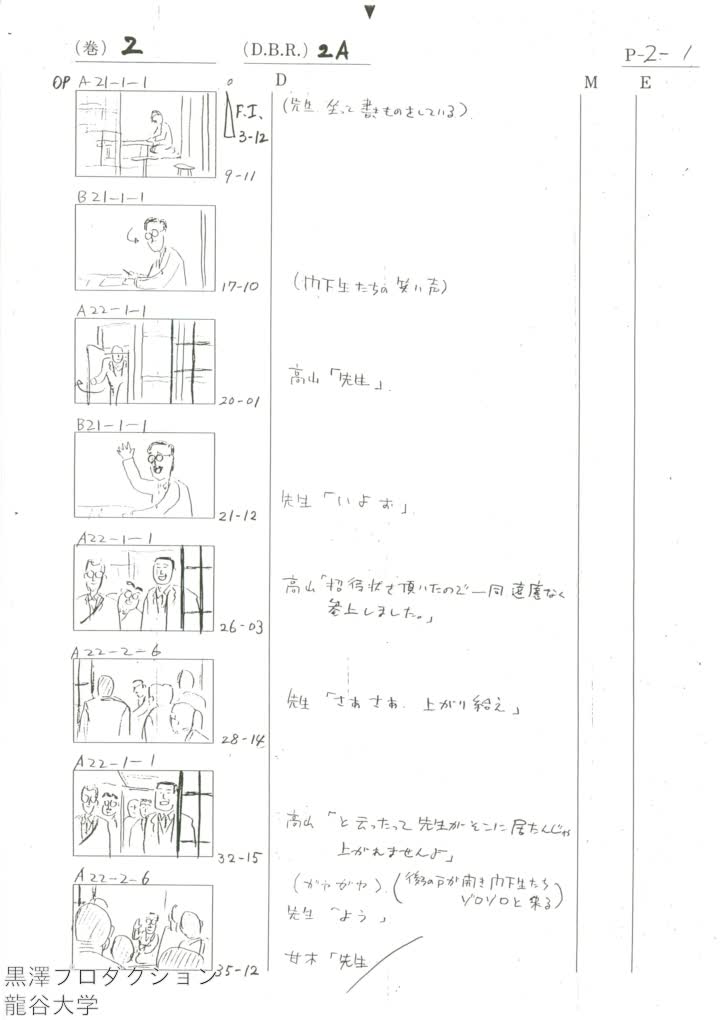 （巻） 2 （D.B.R.） 2A P-2-1
D M E
OP A21-1-1
F.I.
3-12
（先生 坐って書きものをしている）
9-11
B21-1-1
17-10
（門下生たちの笑い声）
A22-1-1
高山「先生」
20-01
B21-1-1
先生「いよお」
21-12
A22-1-1
高山「招待状を頂いたので一同遠慮なく
参上しました。」
26-03
A22-2-6
先生「さあさあ、上がり給え」
28-14
A22-1-1
高山「と云ったって先生がそこに居たんじゃ
上がれませんよ」
32-15
A22-2-6
（ガヤガヤ）（後ろの戸が開き門下生たち
ゾロゾロと来る）
先生「よう」
甘木「先生
35-12
黒澤プロダクション
龍谷大学